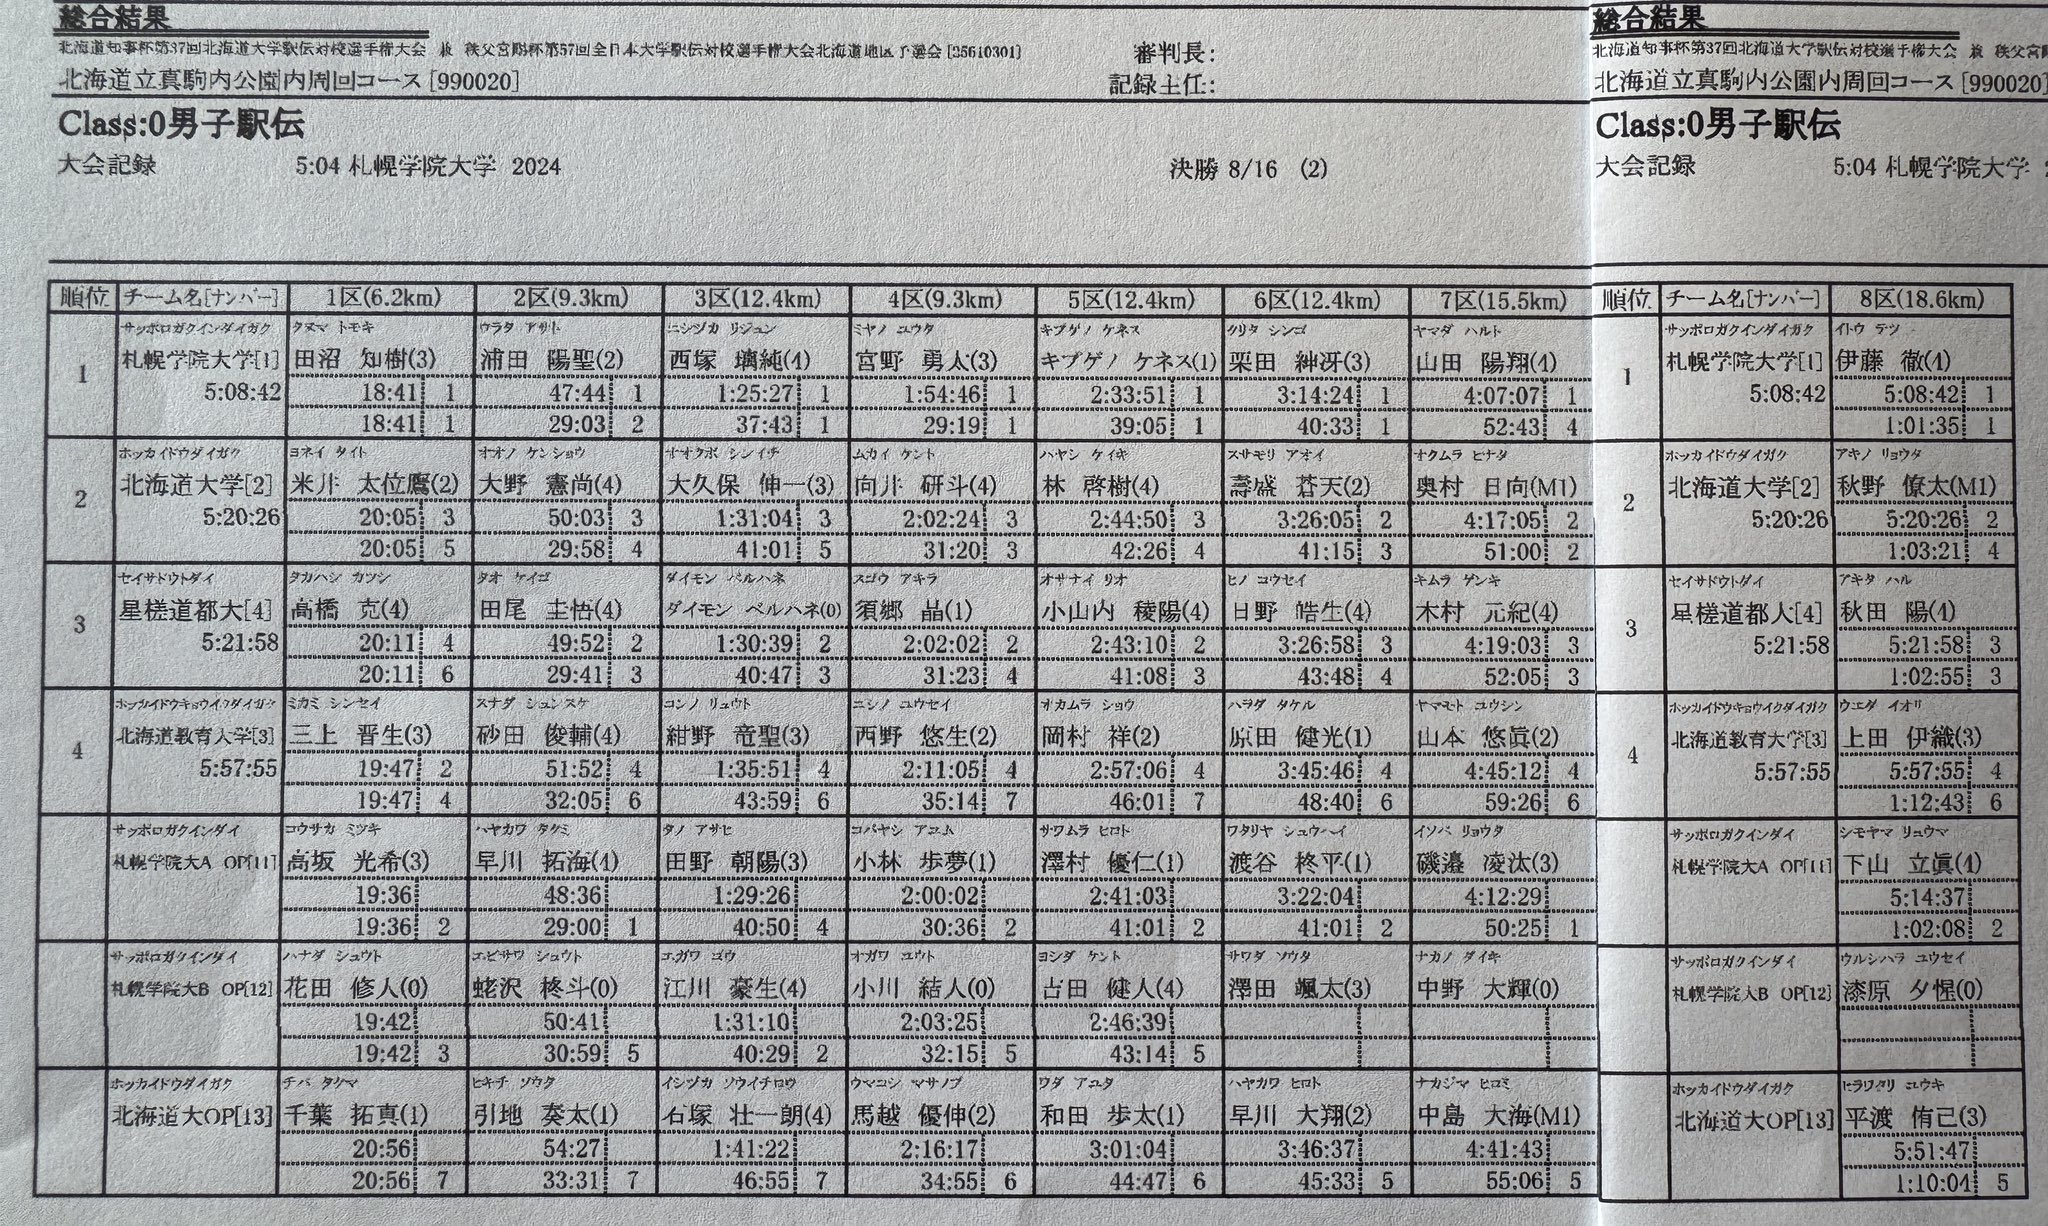 総合結果
北海道知事杯第37回北海道大学駅伝対校選手権大会 兼 秩父宮賜杯第57回全日本大学駅伝対校選手権大会北海道地区予選会 [25610301]
審判長:
北海道立真駒内公園内周回コース [990020]
記録主任:
Class:0男子駅伝
大会記録 5:04 札幌学院大学 2024
決勝 8/16 (2)
順位 チーム名[ナンバー] 1区(6.2km) 2区(9.3km) 3区(12.4km) 4区(9.3km) 5区(12.4km) 6区(12.4km) 7区(15.5km)
サッポロガクインダイガク タヌマ トモキ ウラタ アサト ニシヅカ リジュン ミヤノ ユウタ キプゲノ ケネス クリタ シンゴ ヤマダ ハルト
1 札幌学院大学[1] 田沼 知樹(3) 浦田 陽聖(2) 西塚 璃純(4) 宮野 勇太(3) キプゲノ ケネス(1) 栗田 紳冴(3) 山田 陽翔(4)
5:08:42 18:41 1 47:44 1 1:25:27 1 1:54:46 1 2:33:51 1 3:14:24 1 4:07:07 1
18:41 1 29:03 2 37:43 1 29:19 1 39:05 1 40:33 1 52:43 4
ホッカイドウダイガク ヨネイ タイト オオノ ケンショウ オオクボ シンイチ ムカイ ケント ハヤシ ケイキ スサモリ アオイ オクムラ ヒナタ
2 北海道大学[2] 米井 太位鷹(2) 大野 憲尚(4) 大久保 伸一(3) 向井 研斗(4) 林 啓樹(4) 壽盛 蒼天(2) 奥村 日向(M1)
5:20:26 20:05 3 50:03 3 1:31:04 3 2:02:24 3 2:44:50 3 3:26:05 2 4:17:05 2
20:05 5 29:58 4 41:01 5 31:20 3 42:26 4 41:15 3 51:00 2
セイサドウトダイ タカハシ カツシ タオ ケイゴ ダイモン ベルハネ スゴウ アキラ オサナイ リオ ヒノ コウセイ キムラ ゲンキ
3 星槎道都大[4] 高橋 克(4) 田尾 圭悟(4) ダイモン ベルハネ(0) 須郷 晶(1) 小山内 稜陽(4) 日野 皓生(4) 木村 元紀(4)
5:21:58 20:11 4 49:52 2 1:30:39 2 2:02:02 2 2:43:10 2 3:26:58 3 4:19:03 3
20:11 6 29:41 3 40:47 3 31:23 4 41:08 3 43:48 4 52:05 3
ホッカイドウキョウイクダイガク ミカミ シンセイ スナダ シュンスケ コンノ リュウト ニシノ ユウセイ オカムラ ショウ ハラダ タケル ヤマモト ユウシン
4 北海道教育大学[3] 三上 晋生(3) 砂田 俊輔(4) 紺野 竜聖(3) 西野 悠生(2) 岡村 祥(2) 原田 健光(1) 山本 悠眞(2)
5:57:55 19:47 2 51:52 4 1:35:51 4 2:11:05 4 2:57:06 4 3:45:46 4 4:45:12 4
19:47 4 32:05 6 43:59 6 35:14 7 46:01 7 48:40 6 59:26 6
サッポロガクインダイ コウサカ ミツキ ハヤカワ タクミ タノ アサヒ コバヤシ アユム サワムラ ヒロト ワタリヤ シュウヘイ イソベ リョウタ
札幌学院大A OP[11] 高坂 光希(3) 早川 拓海(4) 田野 朝陽(3) 小林 歩夢(1) 澤村 優仁(1) 渡谷 柊平(1) 磯邉 凌汰(3)
19:36 48:36 1:29:26 2:00:02 2:41:03 3:22:04 4:12:29
19:36 2 29:00 1 40:50 4 30:36 2 41:01 2 41:01 2 50:25 1
サッポロガクインダイ ハナダ シュウト エビサワ シュウト エガワ ゴウ オガワ ユウト ヨシダ ケント サワダ ソウタ ナカノ ダイキ
札幌学院大B OP[12] 花田 修人(0) 蛯沢 柊斗(0) 江川 豪生(4) 小川 結人(0) 吉田 健人(4) 澤田 颯太(3) 中野 大輝(0)
19:42 50:41 1:31:10 2:03:25 2:46:39
19:42 3 30:59 5 40:29 2 32:15 5 43:14 5
ホッカイドウダイガク チバ タクマ ヒキチ ソウタ イシヅカ ソウイチロウ ウマコシ マサノブ ワダ アユタ ハヤカワ ヒロト ナカジマ ヒロミ
北海道大OP[13] 千葉 拓真(1) 引地 奏太(1) 石塚 壮一朗(4) 馬越 優伸(2) 和田 歩太(1) 早川 大翔(2) 中島 大海(M1)
20:56 54:27 1:41:22 2:16:17 3:01:04 3:46:37 4:41:43
20:56 7 33:31 7 46:55 7 34:55 6 44:47 6 45:33 5 55:06 5
総合結果
北海道知事杯第37回北海道大学駅伝対校選手権大会 兼 秩父宮
北海道立真駒内公園内周回コース [990020]
Class:0男子駅伝
大会記録 5:04 札幌学院大学
順位 チーム名[ナンバー] 8区(18.6km)
サッポロガクインダイガク イトウ テツ
1 札幌学院大学[1] 伊藤 徹(4)
5:08:42 5:08:42 1
1:01:35 1
ホッカイドウダイガク アキノ リョウタ
2 北海道大学[2] 秋野 僚太(M1)
5:20:26 5:20:26 2
1:03:21 4
セイサドウトダイ アキタ ハル
3 星槎道都大[4] 秋田 陽(4)
5:21:58 5:21:58 3
1:02:55 3
ホッカイドウキョウイクダイガク ウエダ イオリ
4 北海道教育大学[3] 上田 伊織(3)
5:57:55 5:57:55 4
1:12:43 6
サッポロガクインダイ シモヤマ リュウマ
札幌学院大A OP[11] 下山 立眞(4)
5:14:37
1:02:08 2
サッポロガクインダイ ウルシハラ ユウセイ
札幌学院大B OP[12] 漆原 夕惺(0)
ホッカイドウダイガク ヒラワタリ ユウキ
北海道大OP[13] 平渡 侑己(3)
5:51:47
1:10:04 5